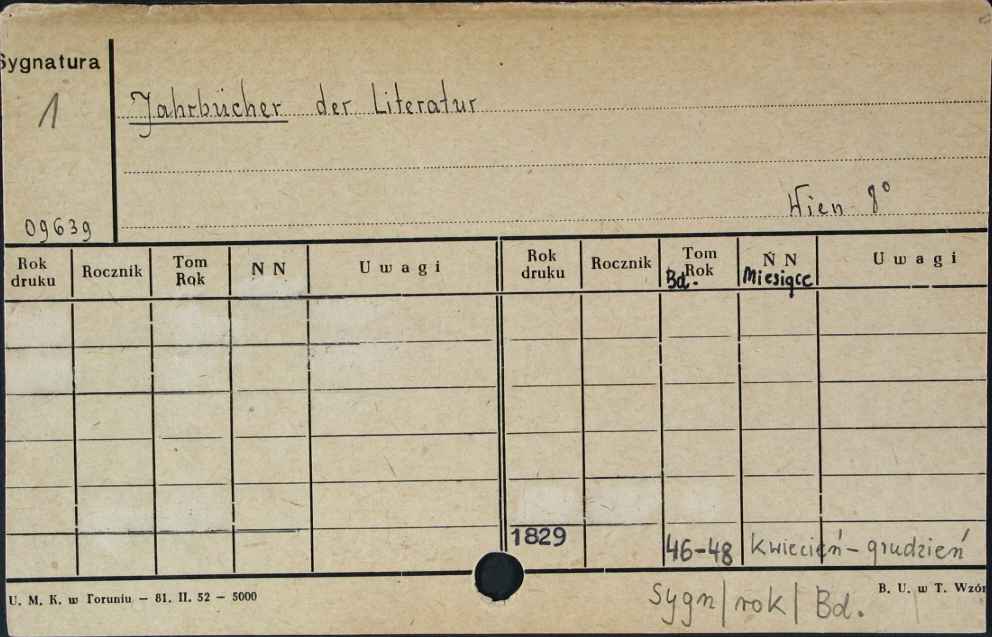 Sygnatura
1
Jahrbücher der Literatur
Wien 8°
09639
Rok druku Rocznik Tom Rok N N Uwagi Rok druku Rocznik Tom Rok Bd. N N Miesiące Uwagi
1829 46-48 kwiecień - grudzień
U. M. K. w Toruniu — 81. II. 52 — 5000
B. U. w T. Wzór
Sygn/rok/Bd.